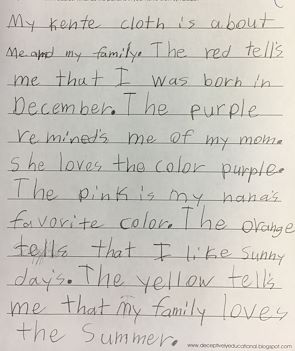 My kente cloth is about
me and my family. The red tell's
me that I was born in
December. The purple
remined's me of my mom.
she loves the color purple.
The pink is my nana's
favorite color. The orange
tells that I like sunny
day's. The yellow tell's
me that my family loves
the Summer.
www.deceptivelyeducational.blogspot.com